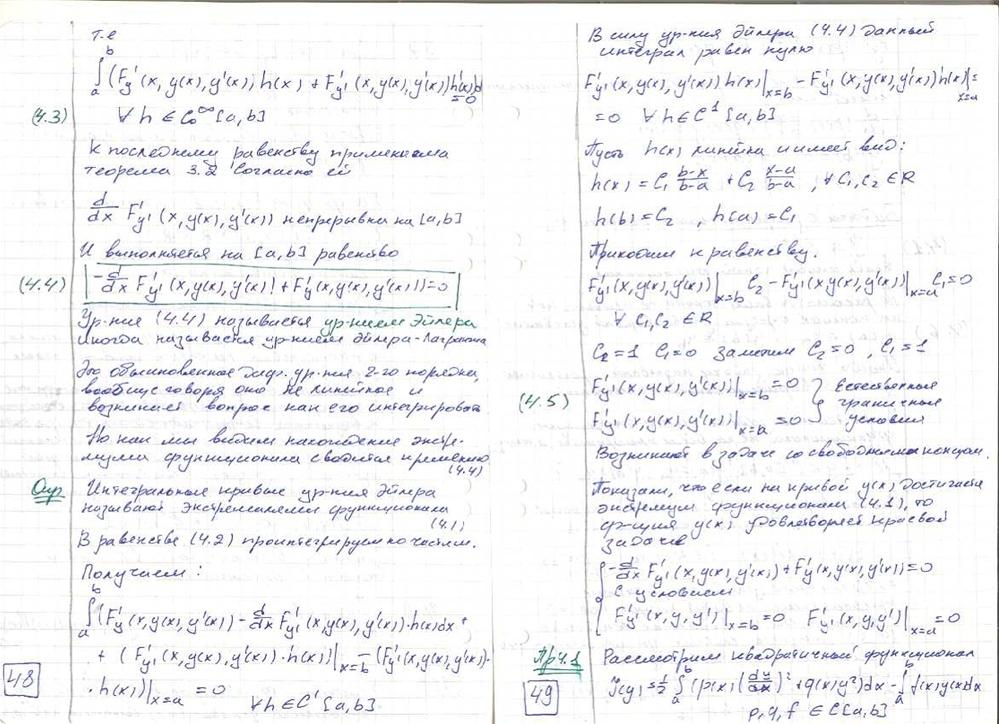 т.е
∫ₐᵇ (F'y (x, y(x), y'(x)) h(x) + F'y' (x, y(x), y'(x)) h'(x))d
=0
(4.3) ∀ h ∈ C₀^∞ [a,b]
К последнему равенству применима
теорема 3.2 Согласно ей
d/dx F'y' (x, y(x), y'(x)) непрерывна на [a,b]
И выполняется на [a,b] равенство
(4.4) -d/dx F'y' (x, y(x), y'(x)) + F'y (x, y(x), y'(x))=0
Ур-ние (4.4) называется ур-нием Эйлера
Иногда называется ур-нием Эйлера-Лагранжа
Это обыкновенное дифф. ур-ние 2-го порядка,
вообще говоря оно не линейное и
возникает вопрос как его интегрировать
Но как мы видим нахождение экстре-
мума функционала сводится к решению
(4.4)
Опр Интегральные кривые ур-ния Эйлера
называют экстремалями функционала
(4.1)
В равенстве (4.2) проинтегрируем по частям.
Получаем:
∫ₐᵇ (F'y (x, y(x), y'(x)) - d/dx F'y' (x, y(x), y'(x)) · h(x)dx +
+ (F'y' (x, y(x), y'(x)) · h(x))|x=b - (F'y' (x, y(x), y'(x)) ·
· h(x))|x=a = 0 ∀h ∈ C¹ [a,b]
48
В силу ур-ния Эйлера (4.4) данный
интеграл равен нулю
F'y' (x, y(x), y'(x)) h(x)|x=b - F'y' (x, y(x), y'(x)) h(x)|x=a =
=0 ∀ h ∈ C¹ [a,b]
Пусть h(x) линейна и имеет вид:
h(x) = C₁ (b-x)/(b-a) + C₂ (x-a)/(b-a) , ∀ C₁,C₂ ∈ R
h(b) = C₂ , h(a) = C₁
Приходим к равенству.
F'y' (x, y(x), y'(x))|x=b C₂ - F'y' (x, y(x), y'(x))|x=a C₁ = 0
∀ C₁, C₂ ∈ R
C₂=1 C₁=0 затем C₂=0 , C₁=1
F'y' (x, y(x), y'(x))|x=b = 0 } Естественные
(4.5) граничные
F'y' (x, y(x), y'(x))|x=a = 0 условия
Возникают в задаче со свободными концами.
Показали, что если на кривой y(x) достигается
экстремум функционала (4.1), то
ф-ция y(x) удовлетворяет краевой
задаче
{ -d/dx F'y' (x, y(x), y'(x)) + F'y (x, y(x), y'(x)) = 0
с условием
F'y' (x, y, y')|x=b = 0 F'y' (x, y, y')|x=a = 0
Пр 4.1 Рассмотрим квадратичный функционал
J(y) = 1/2 ∫ₐᵇ (p(x) (dy/dx)² + q(x) y²)dx - ∫ₐᵇ f(x) y(x)dx
p, q, f ∈ C[a,b]
49